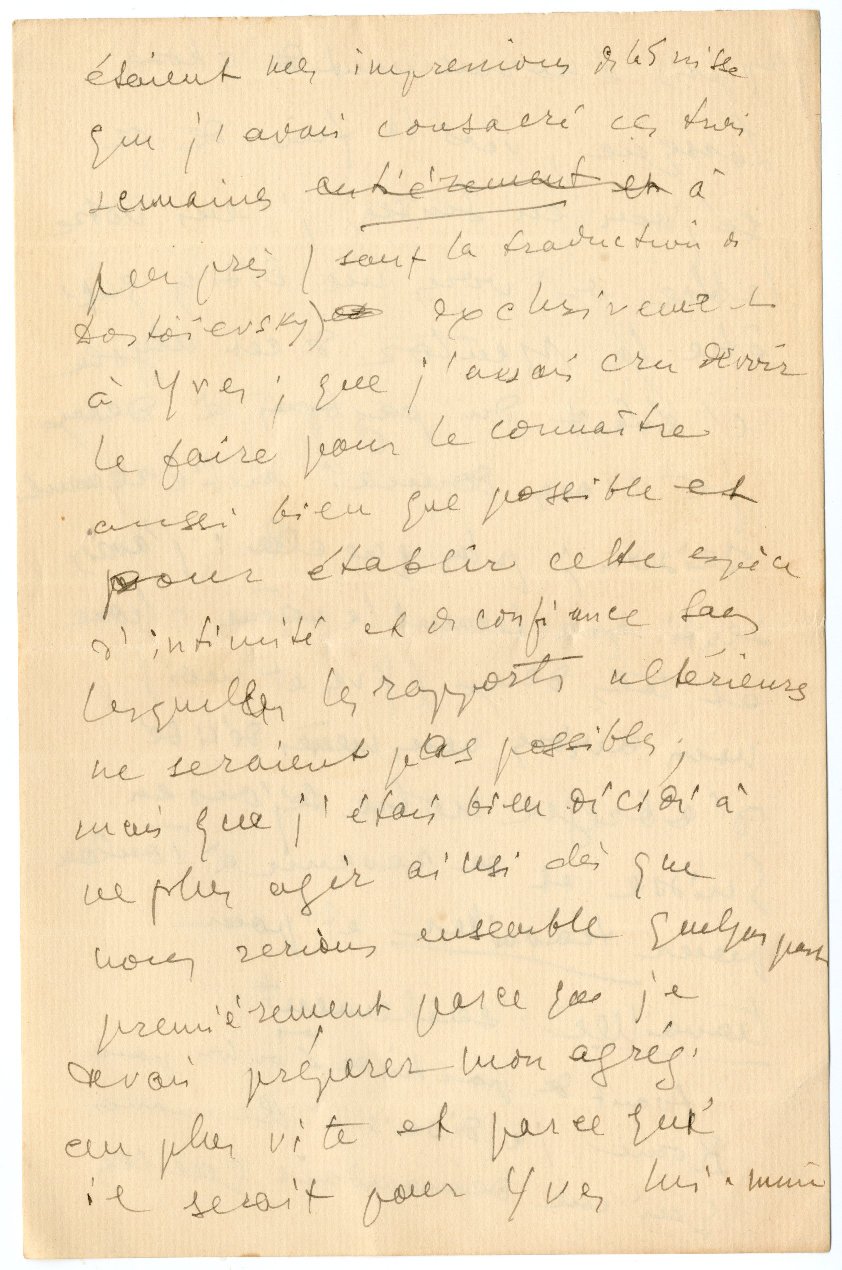 étaient mes impressions de Suisse
que j'avais consacré ces trois
semaines entièrement et à
peu près (sauf la traduction de
Dostoïevsky) exclusivement
à Yves ; que j'avais cru devoir
le faire pour le connaître
aussi bien que possible et
pour établir cette espèce
d'intimité et de confiance sans
lesquelles les rapports ultérieurs
ne seraient pas possibles ;
mais que j'étais bien décidé à
ne plus agir ainsi dès que
nous serions ensemble quelque part
premièrement parce que je
devais préparer mon agrég.
au plus vite et parce que
il serait pour Yves lui-même